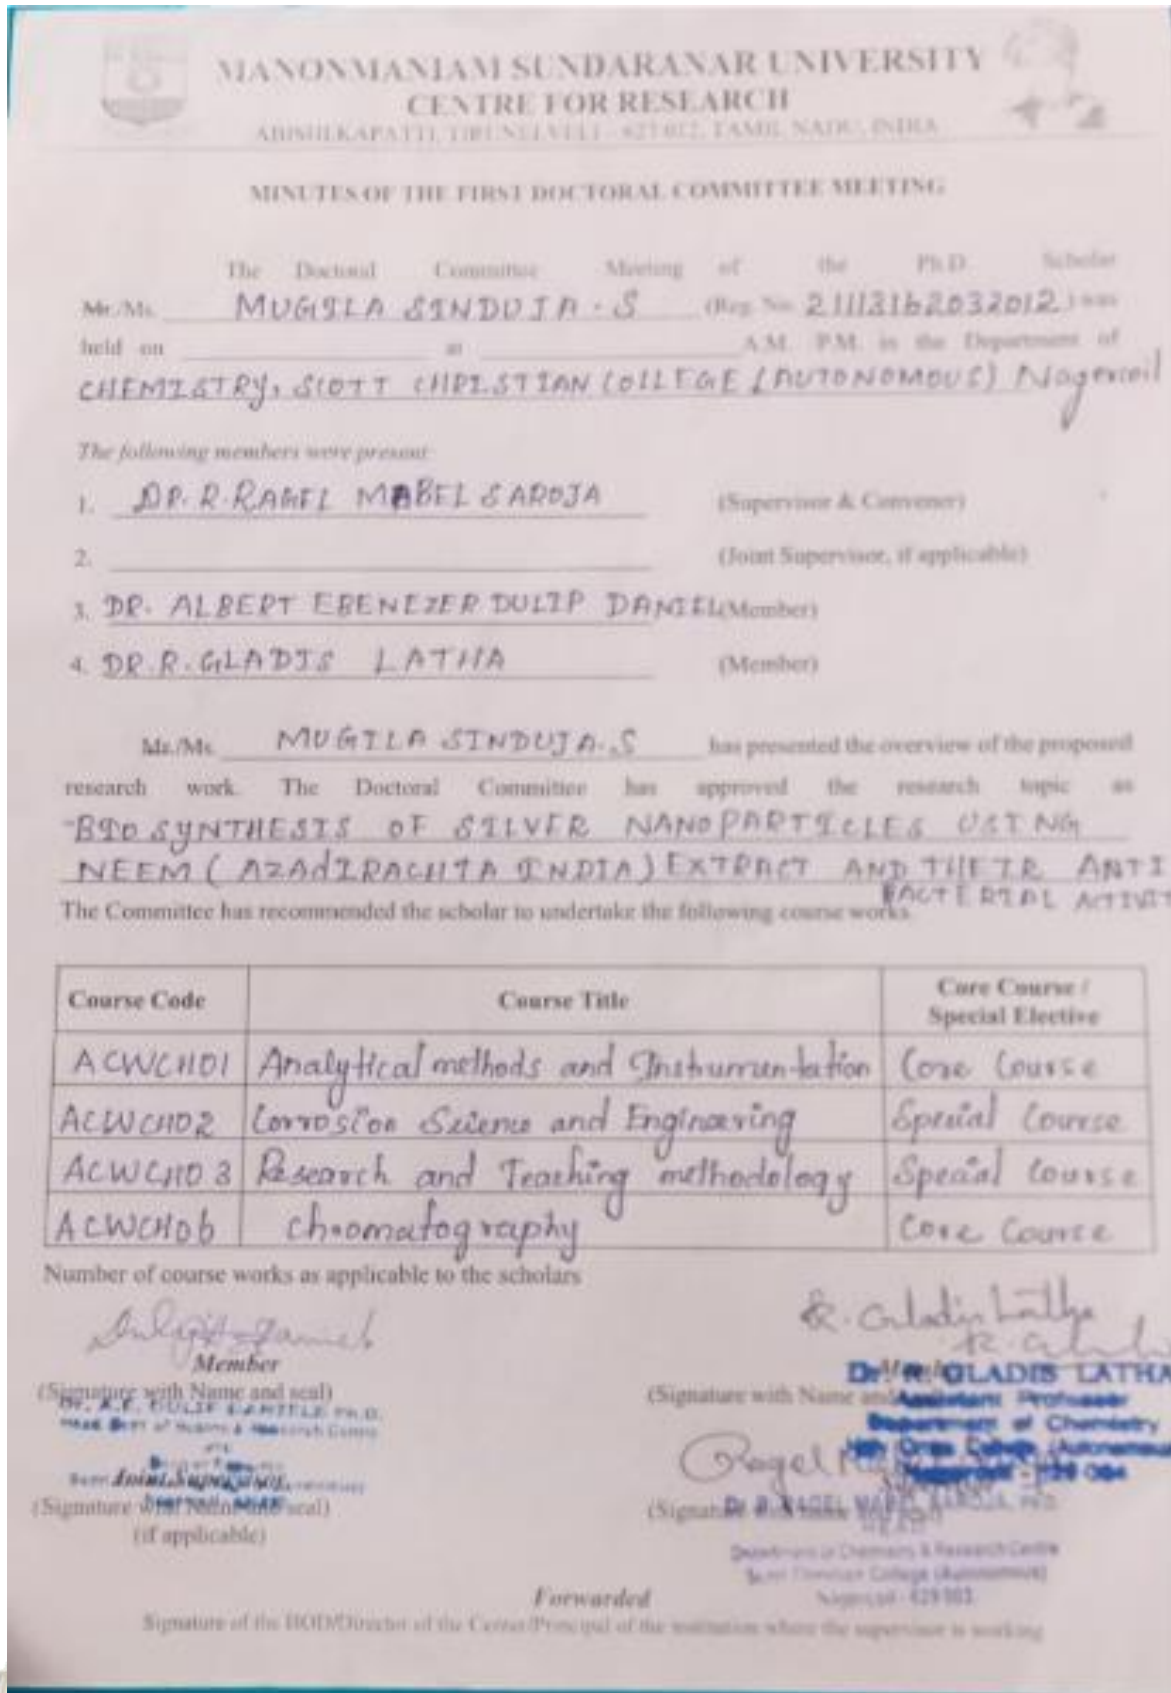 MANONMANIAM SUNDARANAR UNIVERSITY
CENTRE FOR RESEARCH
ABISHEKAPATTI, TIRUNELVELI - 627 012, TAMIL NADU, INDIA
MINUTES OF THE FIRST DOCTORAL COMMITTEE MEETING
The Doctoral Committee Meeting of the Ph.D. Scholar
Mr./Ms. MUGILA SINDUJA - S (Reg. No. 21113162032012) was
held on at A.M. P.M. in the Department of
CHEMISTRY, SCOTT CHRISTIAN COLLEGE (AUTONOMOUS) Nagercoil
The following members were present
1. DR. R. RAGEL MABEL SAROJA (Supervisor & Convener)
2. (Joint Supervisor, if applicable)
3. DR. ALBERT EBENEZER DULIP DANIEL (Member)
4. DR. R. GLADIS LATHA (Member)
Mr./Ms. MUGILA SINDUJA. S has presented the overview of the proposed
research work. The Doctoral Committee has approved the research topic as
BIO SYNTHESIS OF SILVER NANOPARTICLES USING
NEEM (AZADIRACHTA INDIA) EXTRACT AND THEIR ANTI
BACTERIAL ACTIVIT
The Committee has recommended the scholar to undertake the following course works
Course Code Course Title Core Course / Special Elective
ACWCH01 Analytical methods and Instrumentation Core Course
ACWCH02 Corrosion Science and Engineering Special Course
ACWCH03 Research and Teaching methodology Special Course
ACWCH06 Chromatography Core Course
Number of course works as applicable to the scholars
R. Gladis Latha
Member
Dr. R. GLADIS LATHA
(Signature with Name and seal) (Signature with Name and
Assistant Professor
Department of Chemistry
College (Autonomous
Ragel
Joint Supervisor
(Signature with Name and seal)
Dr. R. RAGEL MABEL SAROJA, Ph.D.
HEAD
(if applicable)
Department of Chemistry & Research Centre
Scott Christian College (Autonomous)
Nagercoil - 629 003
Forwarded
Signature of the HOD/Director of the Center/Principal of the institution where the supervisor is working